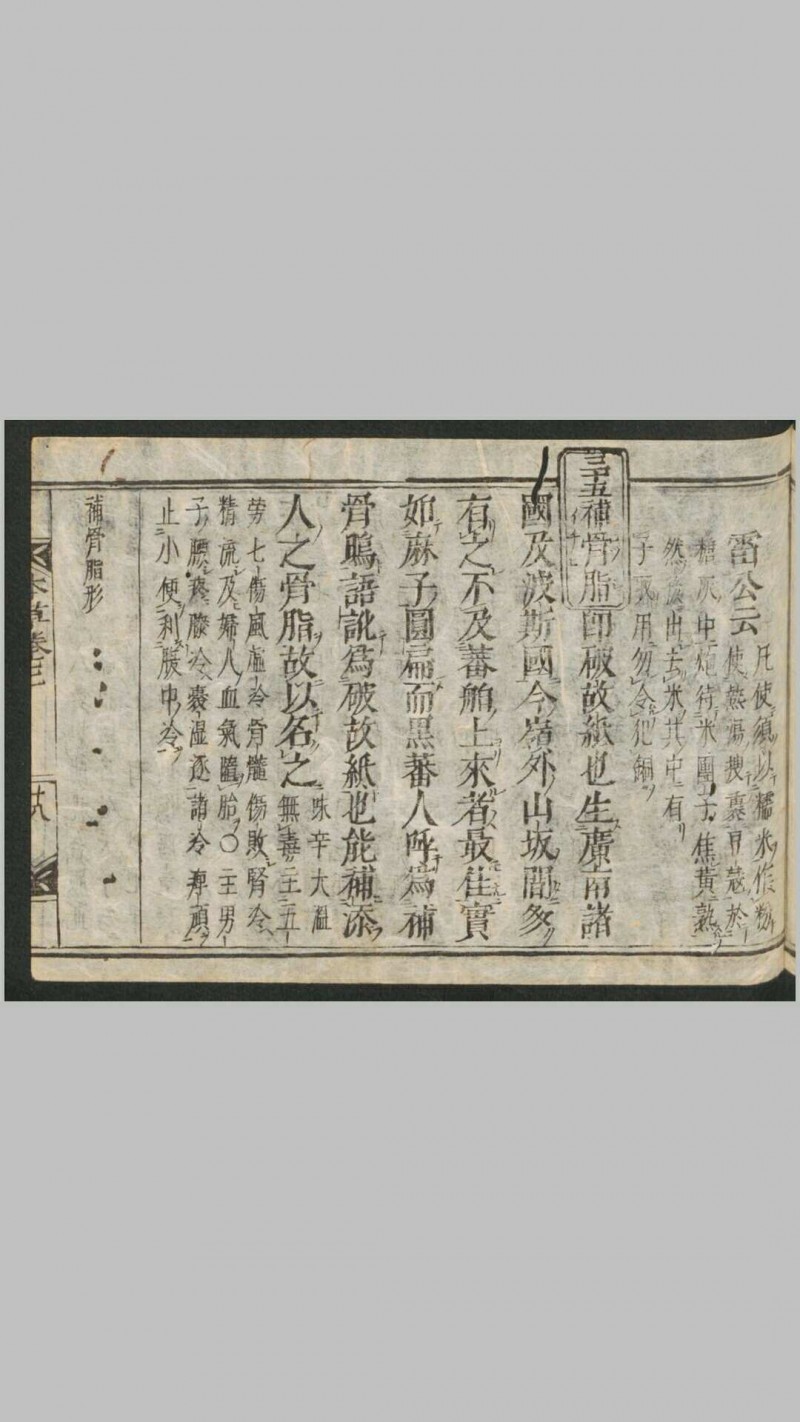 雷公云
凡使須以糯米作粉
使熱湯搜裹豆蔻於
糖灰中炮待米團子焦黃熟
然後出去米其中有
子取用勿令犯銅
補骨脂即破故紙也生廣南諸
國及波斯國今嶺外山坂間多
有之不及蕃舶上來者最佳實
如麻子圓扁而黑蕃人呼為補
骨鴟語訛為破故紙也能補添
人之骨脂故以名之
味辛大溫
無毒主五
勞七傷風虛冷骨髓傷敗腎冷
精流及婦人血氣墮胎〇主男
子腰疼膝冷囊濕逐諸冷痹頑
止小便利腹中冷
補骨脂形
本草卷三
十八